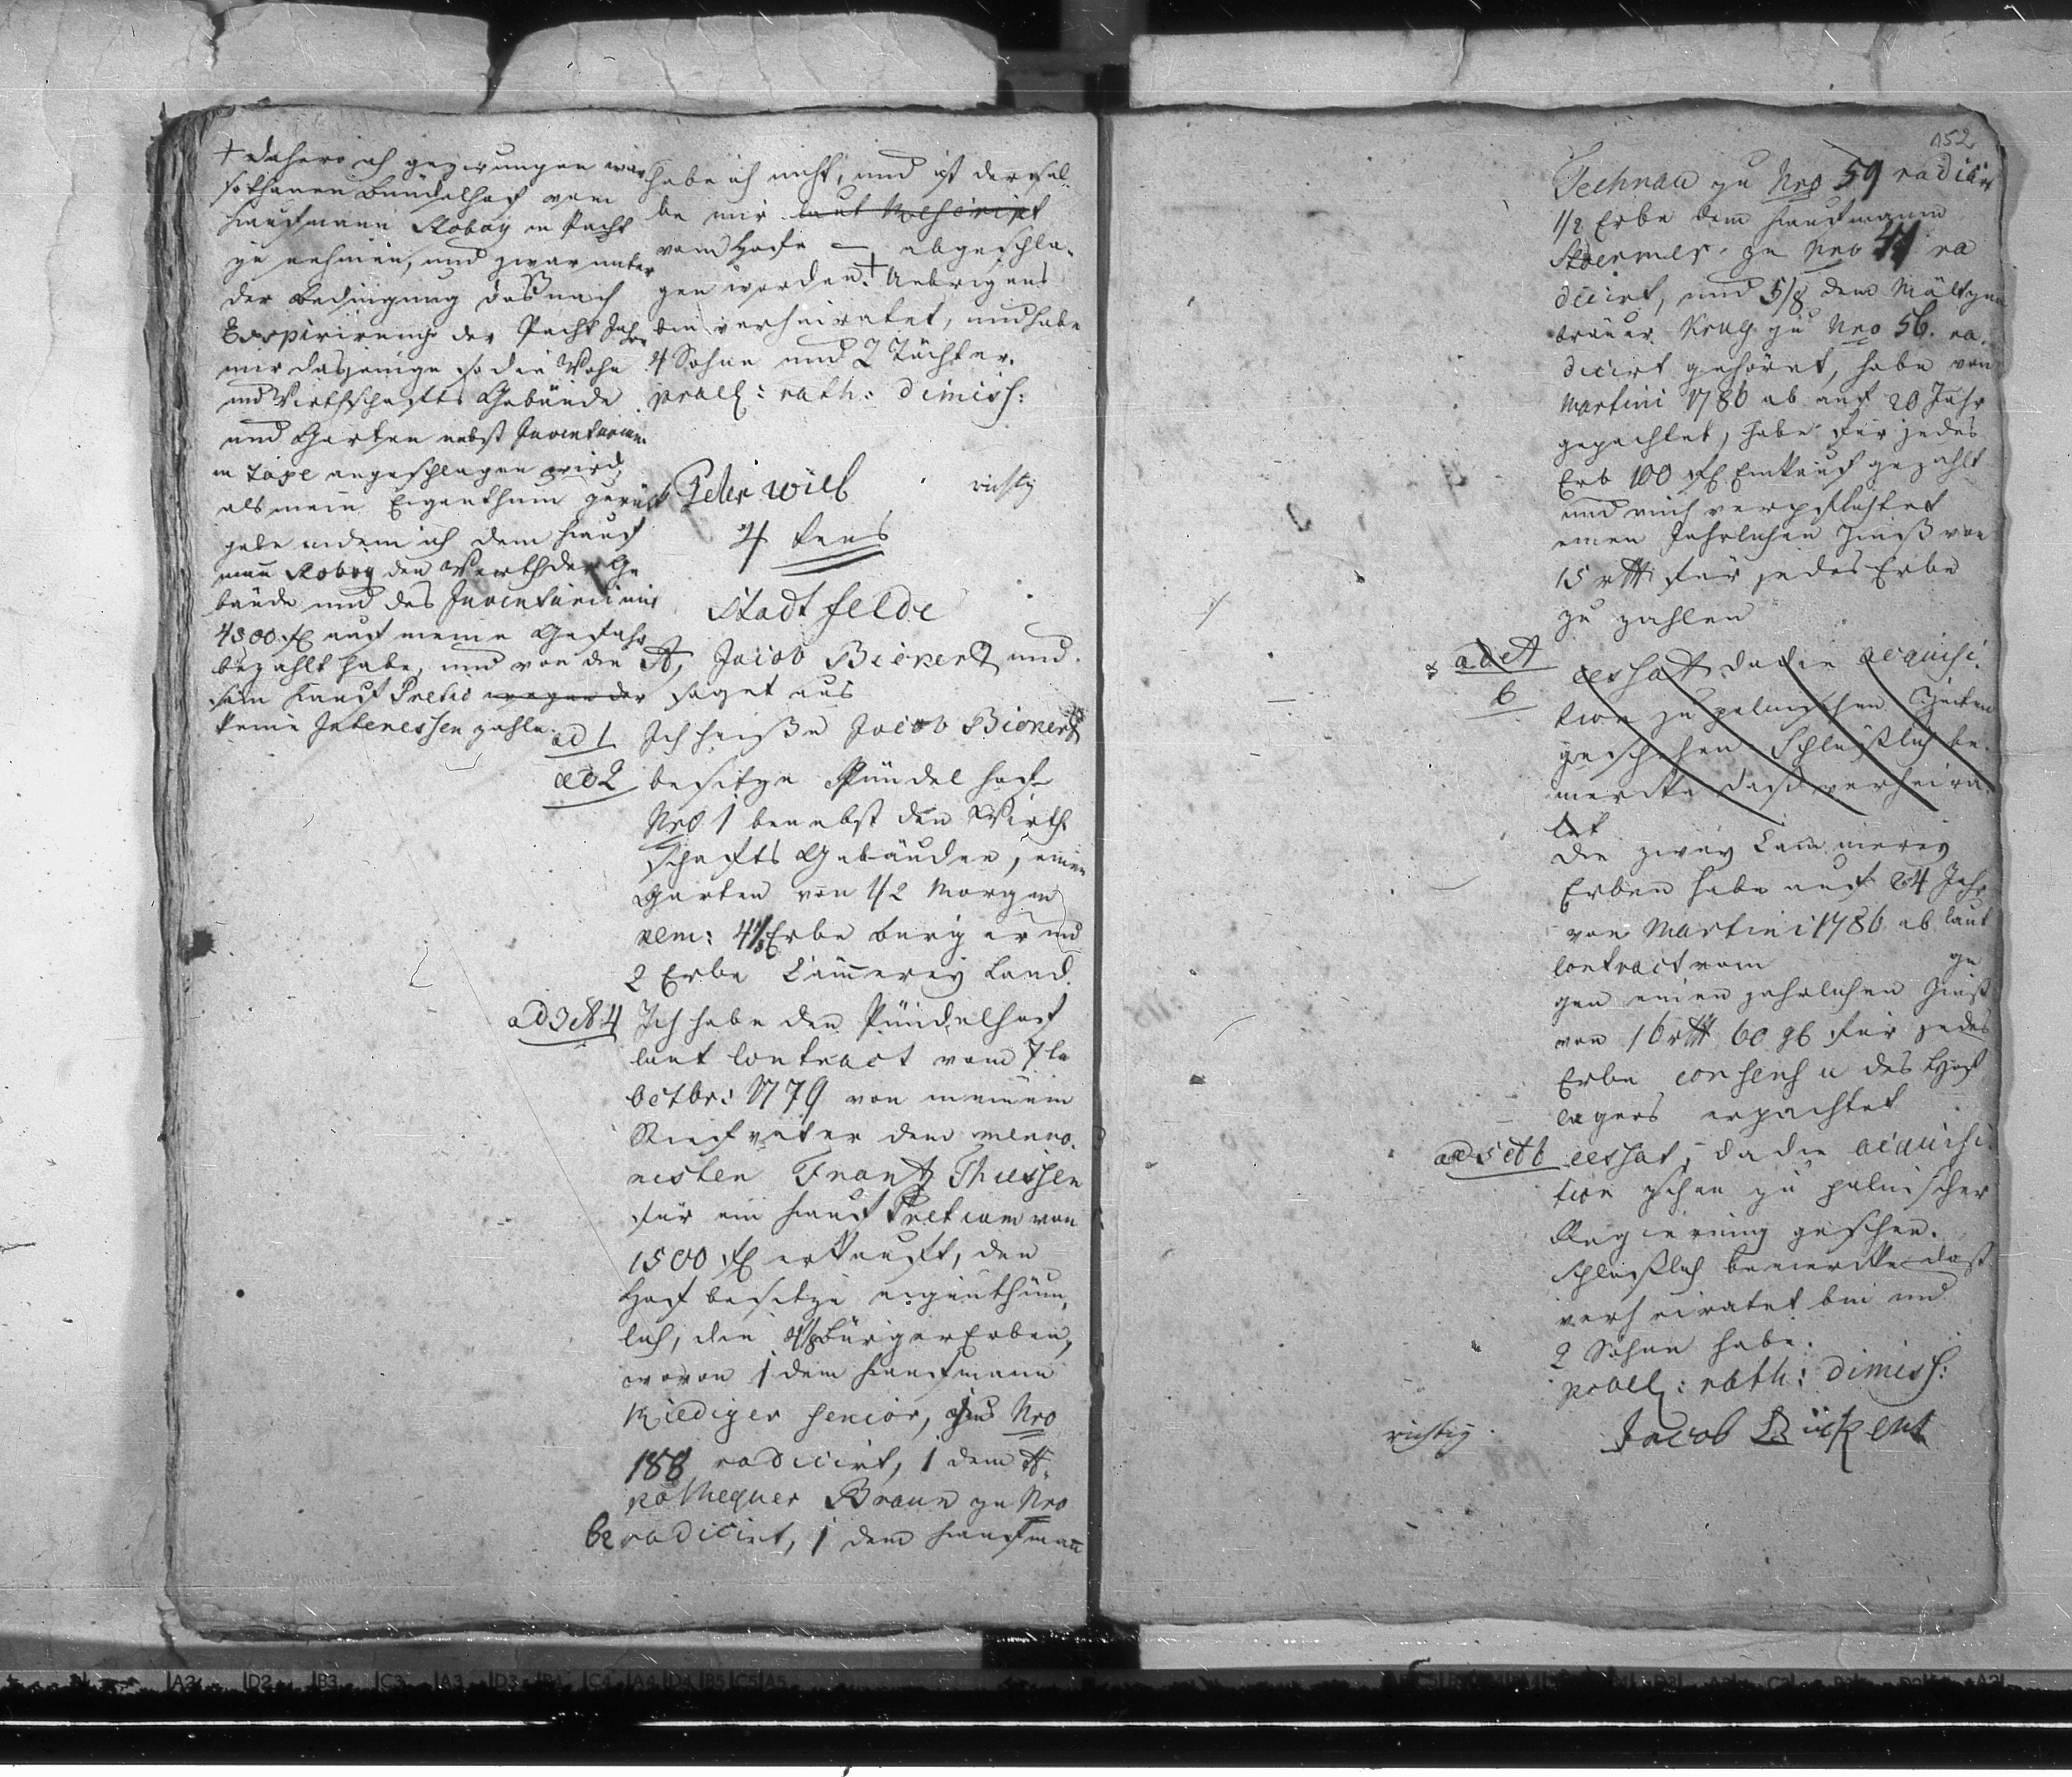 + dahero ich gezwungen war
sothanen Bündelhoff vom
Kauffmann Roboy in Pacht
zu nehmen, und zwar unter
der Bedingung daß nach
Exspirirung der Pacht Jahre
mir dasjenige so die Wohn
und Wirthschafts Gebäude
und Garten nebst Inventarium
in Taxe angeschlagen wird,
als mein Eigenthum zurück
gebe indem ich dem Kauff
mann Roboy den Werth der Ge
bäude und des Inventarii mit
4300 fl auf meine Gefahr
bezahlt habe, und von die
sem Kauf Pretio wegen der
keine Interessen zahle.
habe ich nicht, und ist dersel-
be mir laut Rescript
vom Hofe — abgeschla-
gen worden.+ Uebrigens
bin verheiratet, und habe
4 Söhne und 2 Töchter.
prael: rath: dimiss:
Peter wieb richtig
4 tens
Stadtfelde
A, Jacob Bickert und
saget aus
ad 1 Ich heiße Jacob Bickert
ad 2 besitze Pündel hoff
Nro 1 benebst den Wirth
schafts Gebäuden, einen
Garten von 1/2 Morgen
item: 4 1/8 Erbe burger und
2 Erbe Cämmerey Land.
ad 3 et 4 Ich habe den Pündelhoff
laut Contract vom 7te
Octbr: 1779 von meinem
Stiefvater dem menno
nisten Frantz Thiessen
für ein Kauf Pretium von
1500 fl erkauft, den
Hoff besitze eigenthüm-
lich, die 4 1/8 bürger Erben,
wovon 1 dem Kauffmann
Riediger senior, zu Nro
188 radicirt, 1 dem A-
pothequer Braun zu Nro
62 radicirt, 1 dem Kauffmann
152
Technau zu Nro 59 radicirt
1/2 Erbe dem Kauffmann
Stoermer zu Nro 41 ra
dicirt, und 5/8 dem Mältzen
bräuer Krug zu Nro 56. ra-
dicirt gehöret, habe von
Martini 1786 ab auf 20 Jahr
gepachtet, habe für jedes
Erb 100 fl Einkauf gezahlt
und mich verpflichtet
einen Jährlichen Zinß von
15 rth für jedes Erbe
zu zahlen
ad et
6 cessat da die acquisi-
tion zu polnischen Zeiten
geschehen. Schlüßlich be-
mercke daß verheira-
tet
die zwey Cämmerey
Erben habe auf 24 Jahr
von Martini 1786 ab laut
Contract vom ge
gen einen jahrlichen Zinß
von 16 rth 60 gl für jedes
Erbe consensu des Hoff
lagers erpachtet
ad 5 et 6 cessat, da die acquisi-
tion schon zu polnischer
Regierung geschen.
Schlüßlich bemercke daß
verheiratet bin und
2 Söhne habe.
prael: rath: dimiss:
richtig Jacob Bickert